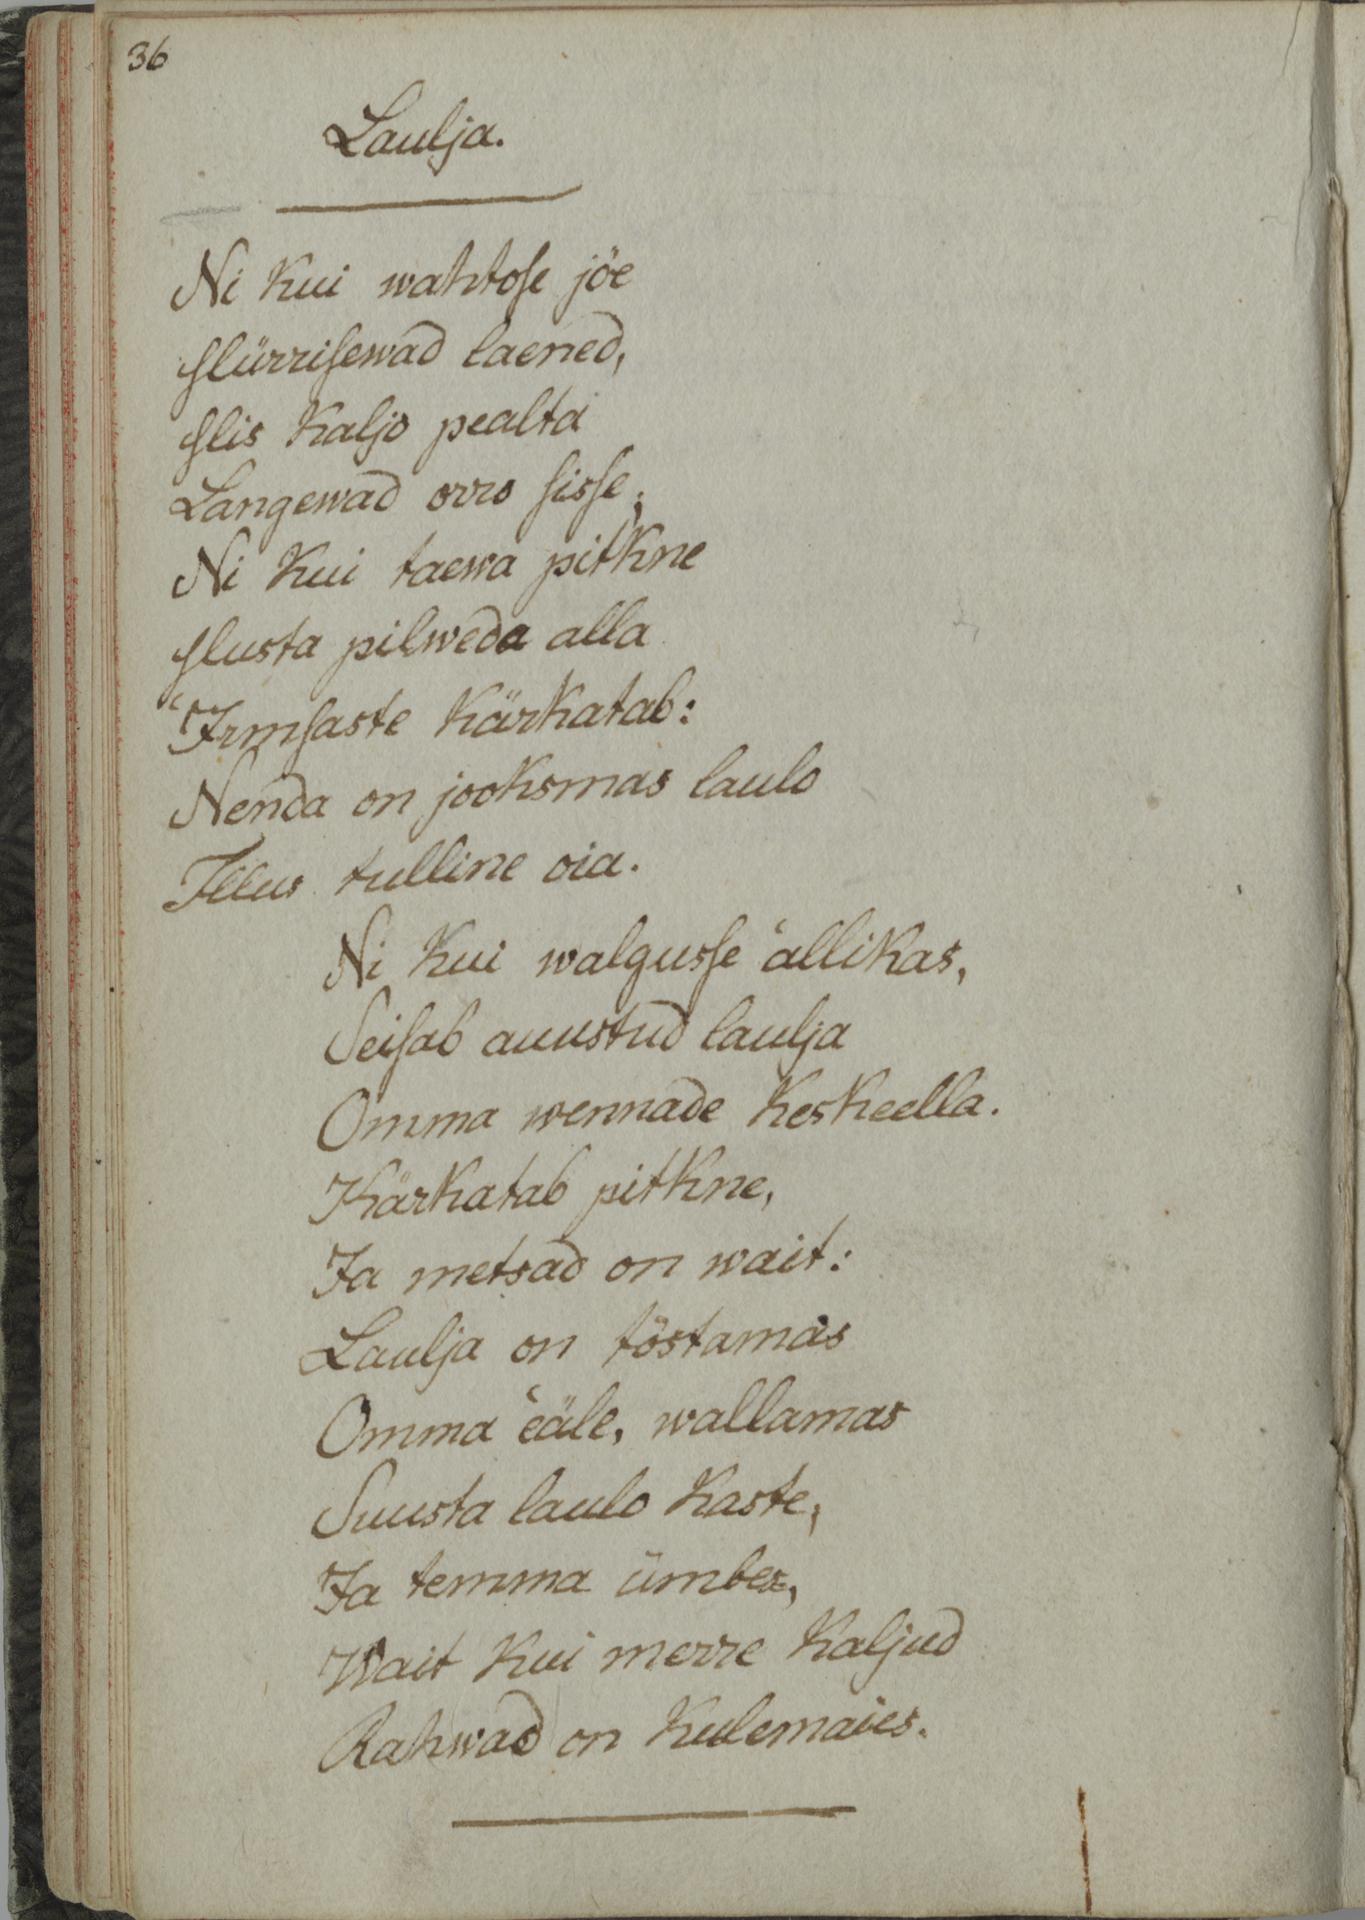 36
Laulja.
Ni kui wahtoſe jöe
ſlürriſewad laened,
ſlis kaljo pealta
Langewad orro ſisſe;
Ni kui taewa pitkne
ſlusta pilweda alla
'Irmſaste kärkatab:
Nenda on jooksmas laulo
Illus tulline oia.
Ni kui walgusſe 'allikas,
Seiſab auustud laulja
Omma wennade keskeella.
Kärkatab pitkne,
Ja metsad on wait:
Laulja on töstamas
Omma 'eäle, wallamas
Suusta laulo kaste,
Ja temma ümber,
Wait kui merre kaljud
Rahwad on kulemaies.